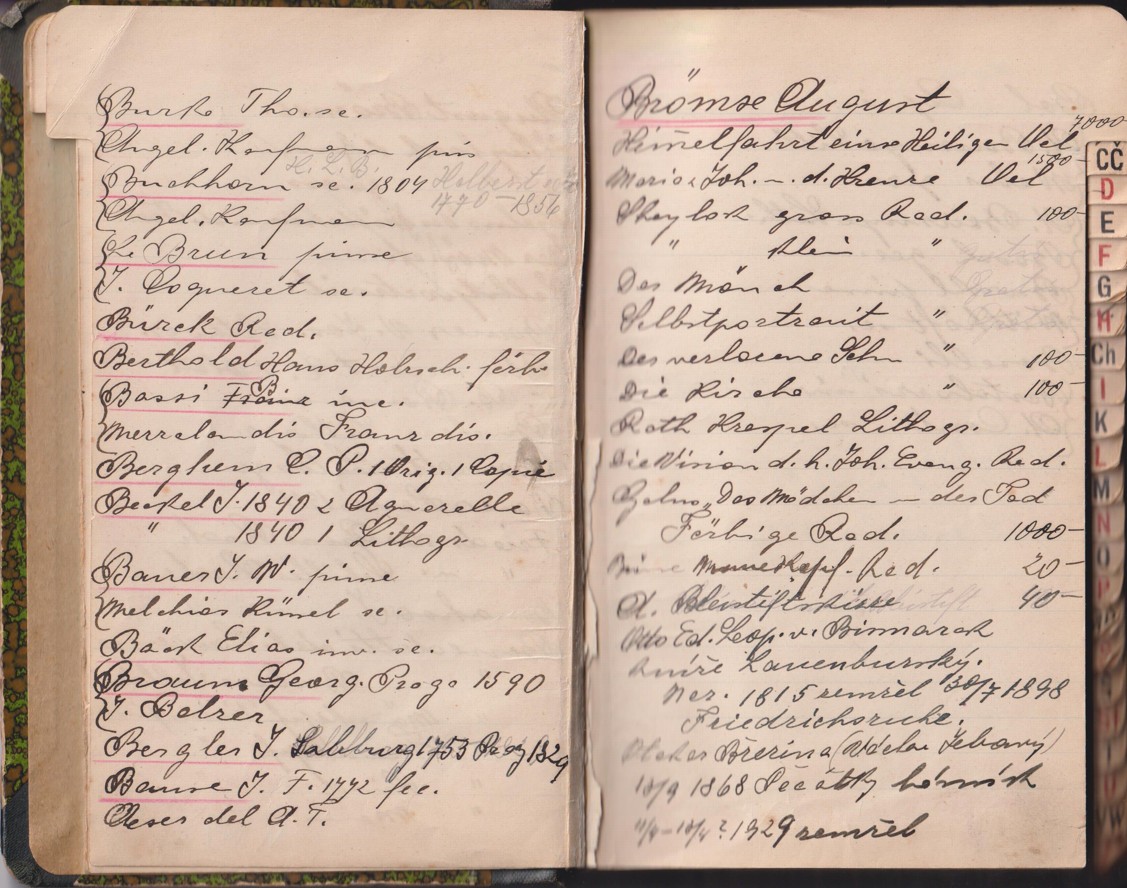 Burke Tho. sc.
Angel. Kaufmann pin
H. L. B.
Buchhorn sc. 1804
1770-1856
Angel. Kaufman
Le Brun pinx
J. Coqueret sc.
Bürck Rad.
Berthold Hans Holzsch. färb
Bassi Franz B inc.
Franz dis.
Berghem C. P. 1 Orig. 1 Copie
Beckel J. 1840 2 Aquarelle
" 1840 1 Lithogr
Bauer J. W. pinx
Melchior Küsel sc.
Bäck Elias inv. sc.
Braun Georg. Prago 1590
J. Balzer
Bergler J. Salzburg 1753 Prag 1829
Bause J. F. 1772 fec.
Oeser del A. F.
Brömse August
7000
Himmelfahrt eines Heiligen Oel
1500-
Maria u Joh. - d. Kreuze Oel
Shaylok gross Rad. 100-
" klein "
Der Mönch
Selbstportrait "
Der verlorene Sohn " 100-
Die Kirche " 100-
Rath Krespel Lithogr.
Die Vision d. h. Joh. Evang. Rad.
„Das Mädchen - der Tod
Färbige Rad. 1000-
Rad. 20-
A. Bleistiftskisse 40-
Otto Ed. Leop. v. Bismarck
kníže Lauenburský.
Nar. 1815 zemřel 30/7 1898
Friedrichsruhe.
Otakar Březina (Václav Jebavý)
13/9 1868 Počátky
1929 zemřel
CČ
D
E
F
G
H
Ch
I
K
L
M
N
O
P
T
U
VW